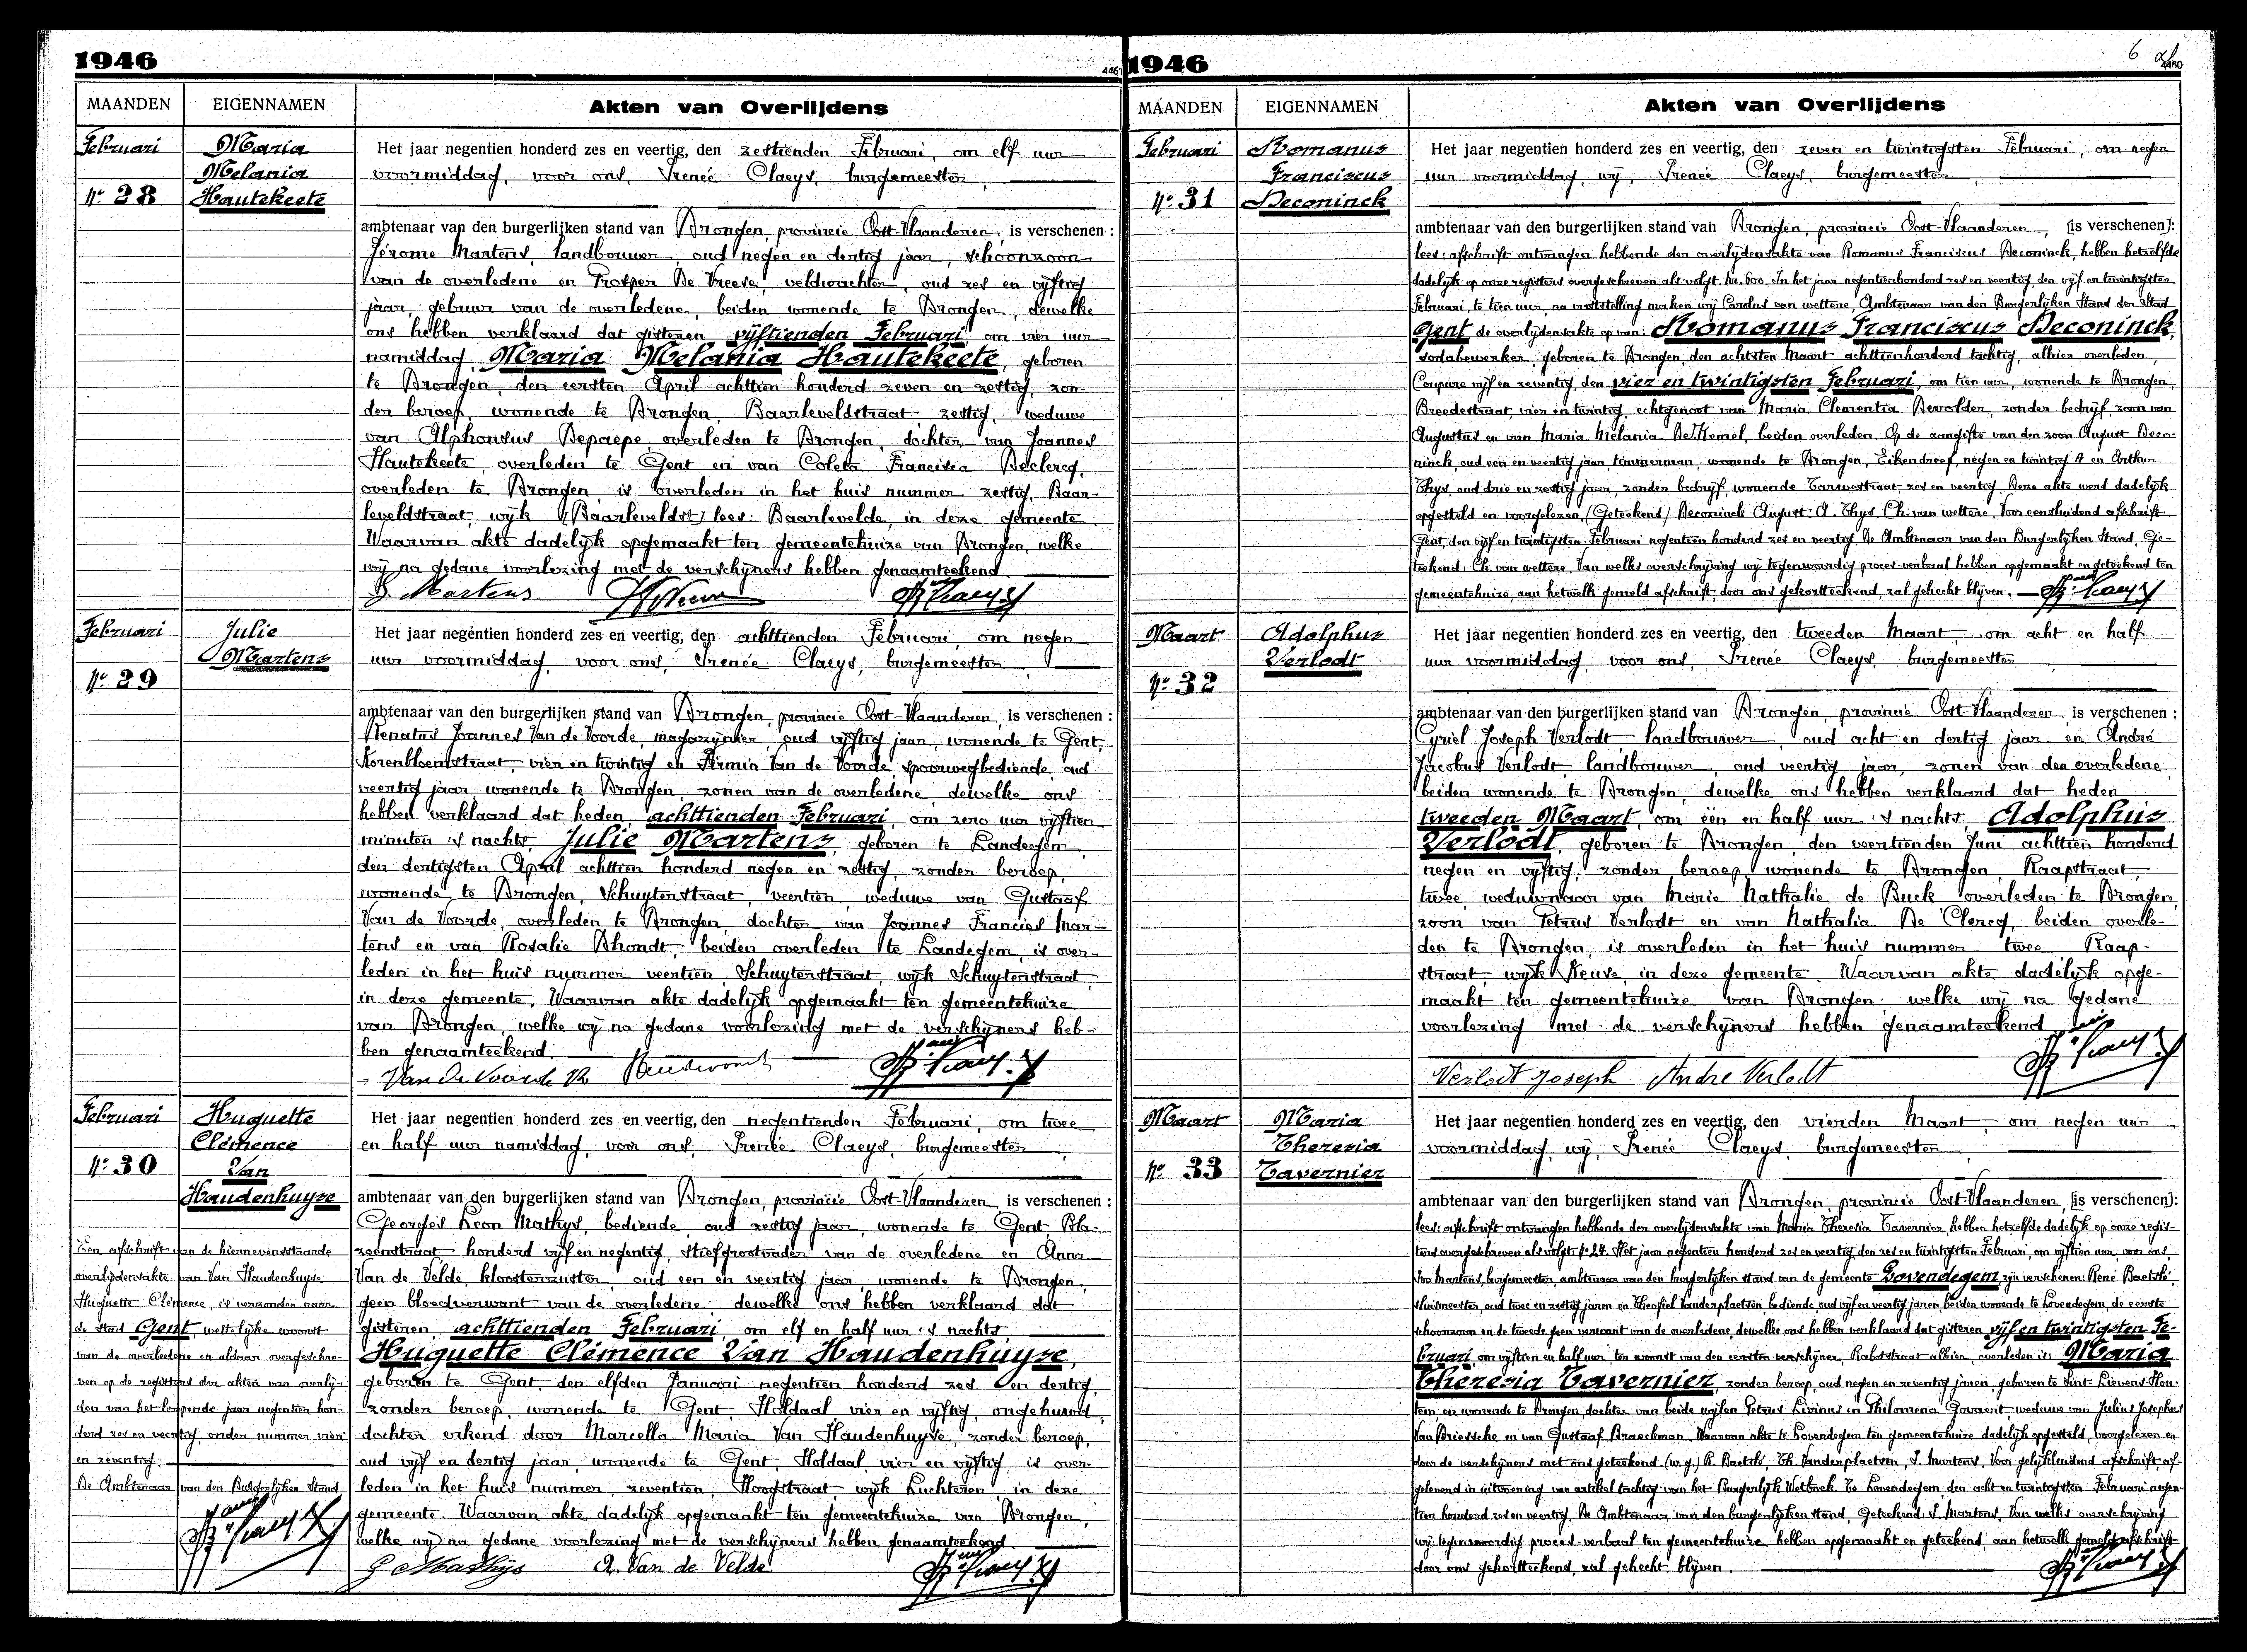 1946
MAANDEN EIGENNAMEN Akten van Overlijdens
Februari
Nr. 28
Maria
Melania
Hautekeete
Het jaar negentien honderd zes en veertig, den zestienden Februari, om elf uur
voormiddag, voor ons, Irenée Claeys, burgemeester,
ambtenaar van den burgerlijken stand van Drongen, provincie Oost-Vlaanderen, is verschenen :
Jérome Martens, landbouwer, oud negen en dertig jaar, schoonzoon
van de overledene en Prosper De Vreese, veldwachter, oud zes en vijftig
jaar, gebuur van de overledene, beiden wonende te Drongen, dewelke
ons hebben verklaard dat gisteren vijftienden Februari, om vier uur
namiddag, Maria Melania Hautekeete, geboren
te Drongen, den eersten April achttien honderd zeven en zestig, zon-
der beroep, wonende te Drongen, Baarleveldstraat zestig, weduwe
van Alphonsus Depaepe, overleden te Drongen, dochter van Joannes
Hautekeete, overleden te Gent en van Coleta Francisca Declercq,
overleden te Drongen, is overleden in het huis nummer zestig, Baar-
leveldstraat, wijk (Baarleveldst) lees: Baarlevelde, in deze gemeente.
Waarvan akte dadelijk opgemaakt ten gemeentehuize van Drongen, welke
wij na gedane voorlezing met de verschijners hebben genaamteekend.
J. Martens
Februari
Nr. 29
Julie
Martens
Het jaar negentien honderd zes en veertig, den achttienden Februari, om negen
uur voormiddag, voor ons, Irenée Claeys, burgemeester
ambtenaar van den burgerlijken stand van Drongen, provincie Oost-Vlaanderen, is verschenen :
Renatus Joannes Van de Voorde, magazijnier, oud vijftig jaar, wonende te Gent,
Korenbloemstraat, vier en twintig en Firmin Van de Voorde, spoorwegbediende, oud
veertig jaar wonende te Drongen, zonen van de overledene, dewelke ons
hebben verklaard dat heden, achttienden Februari, om zero uur vijftien
minuten 's nachts, Julie Martens, geboren te Landegem,
den dertigsten April achttien honderd negen en zestig, zonder beroep,
wonende te Drongen, Schuytenstraat, veertien, weduwe van Gustaaf
Van de Voorde, overleden te Drongen, dochter van Joannes Francies Mar-
tens en van Rosalie Dhondt, beiden overleden te Landegem, is over-
leden in het huis nummer veertien, Schuytenstraat, wijk Schuytenstraat,
in deze gemeente. Waarvan akte dadelijk opgemaakt ten gemeentehuize
van Drongen, welke wij na gedane voorlezing met de verschijners heb-
ben genaamteekend.
Van De Voorde R
Februari
Nr. 30
Huguette
Clémence
Van
Haudenhuyse
Het jaar negentien honderd zes en veertig, den negentienden Februari, om twee
en half uur namiddag, voor ons, Irenée Claeys, burgemeester,
ambtenaar van den burgerlijken stand van Drongen, provincie Oost-Vlaanderen, is verschenen :
Georges Leon Mathys, bediende, oud zestig jaar, wonende te Gent, Bla-
zoenstraat honderd vijf en negentig, stiefgrootvader van de overledene en Anna
Van de Velde, kloosterzuster, oud een en veertig jaar, wonende te Drongen,
geen bloedverwant van de overledene, dewelke ons hebben verklaard dat
gisteren, achttienden Februari, om elf en half uur 's nachts,
Huguette Clémence Van Haudenhuyse,
geboren te Gent, den elfden Januari negentien honderd zes en dertig,
zonder beroep, wonende te Gent, Holdaal vier en vijftig, ongehuwd,
dochter erkend door Marcella Maria Van Haudenhuyse, zonder beroep,
oud vijf en dertig jaar, wonende te Gent, Holdaal, vier en vijftig, is over-
leden in het huis nummer, zeventien, Hoogstraat, wijk Luchteren, in deze
gemeente. Waarvan akte dadelijk opgemaakt ten gemeentehuize van Drongen,
welke wij na gedane voorlezing met de verschijners hebben genaamteekend.
G Mathijs A. Van de Velde
Een afschrift van de hiernevensstaande
overlijdensakte van Van Haudenhuyse
Huguette Clémence, is verzonden naar
de stad Gent, wettelijke woonst
van de overledene en aldaar overgeschre-
ven op de registers der akten van overlij-
den van het loopende jaar negentien hon-
derd zes en veertig, onder nummer vier
en zeventig.
De Ambtenaar van den Burgerlijken Stand
1946
6
4460
MAANDEN EIGENNAMEN Akten van Overlijdens
Februari
Nr. 31
Romanus
Franciscus
Deconinck
Het jaar negentien honderd zes en veertig, den zeven en twintigsten Februari, om negen
uur voormiddag, wij, Irenée Claeys, burgemeester
ambtenaar van den burgerlijken stand van Drongen, provincie Oost-Vlaanderen, [is verschenen]:
lees: afschrift ontvangen hebbende der overlijdensakte van Romanus Franciscus Deconinck, hebben hetzelfde
dadelijk op onze registers overgeschreven als volgt. Nr. 600. In het jaar negentienhonderd zes en veertig, den vijf en twintigsten
Februari, te tien uur, na vaststelling maken wij Carolus van wettere, Ambtenaar van den Burgerlijken Stand der Stad
Gent de overlijdensakte op van: Romanus Franciscus Deconinck,
sodabewerker, geboren te Drongen, den achtsten Maart achttienhonderd tachtig, alhier overleden,
Coupure vijf en zeventig, den vier en twintigsten Februari, om tien uur, wonende te Drongen,
Breedestraat, vier en twintig, echtgenoot van Maria Clementia Devolder, zonder bedrijf, zoon van
Augustus en van Maria Melania De Kemel, beiden overleden. Op de aangifte van den zoon August Deco-
ninck, oud een en veertig jaar, timmerman, wonende te Drongen, Eikendreef, negen en twintig A en Arthur
Thys, oud drie en zestig jaar, zonder bedrijf, wonende Tarwestraat, zes en veertig. Deze akte werd dadelijk
opgesteld en voorgelezen. (Geteekend) Deconinck August. A. Thys. Ch. van wettere. Voor eensluidend afschrift.
Gent, den vijf en twintigsten Februari negentien honderd zes en veertig. De Ambtenaar van den Burgerlijken Stand, Ge-
teekend: Ch. van wettere. Van welks overschrijving wij tegenwoordig proces-verbaal hebben opgemaakt en geteekend ten
gemeentehuize, aan hetwelk gemeld afschrift, door ons gekortteekend, zal gehecht blijven.
Maart
Nr. 32
Adolphus
Verlodt
Het jaar negentien honderd zes en veertig, den tweeden Maart, om acht en half
uur voormiddag, voor ons, Irenée Claeys, burgemeester
ambtenaar van den burgerlijken stand van Drongen, provincie Oost-Vlaanderen, is verschenen :
Cyriel Joseph Verlodt, landbouwer, oud acht en dertig jaar en André
Jacobus Verlodt, landbouwer, oud veertig jaar, zonen van den overledene,
beiden wonende te Drongen, dewelke ons hebben verklaard dat heden
tweeden Maart, om één en half uur 's nachts, Adolphus
Verlodt, geboren te Drongen, den veertienden Juni achttien honderd
negen en vijftig, zonder beroep, wonende te Drongen, Raapstraat,
twee, weduwnaar van Marie Nathalie de Buck overleden te Drongen,
zoon van Petrus Verlodt en van Nathalia De Clercq, beiden overle-
den te Drongen, is overleden in het huis nummer twee Raap-
straat, wijk Keuse, in deze gemeente. Waarvan akte dadelijk opge-
maakt ten gemeentehuize van Drongen, welke wij na gedane
voorlezing met de verschijners hebben genaamteekend
Verlodt Joseph André Verlodt
Maart
Nr. 33
Maria
Theresia
Tavernier
Het jaar negentien honderd zes en veertig, den vierden Maart, om negen uur
voormiddag, wij, Irenée Claeys, burgemeester,
ambtenaar van den burgerlijken stand van Drongen, provincie Oost-Vlaanderen, [is verschenen]:
lees: afschrift ontvangen hebbende der overlijdensakte van Maria Theresia Tavernier, hebben hetzelfde dadelijk op onze regis-
ters overgeschreven als volgt: Nr. 24. Het jaar negentien honderd zes en veertig, den zes en twintigsten Februari, om vijftien uur, voor ons,
Ivo Martens, burgemeester, ambtenaar van den burgerlijken stand van de gemeente Lovendegem, zijn verschenen: René Baetslé,
sluismeester, oud twee en zestig jaren en Theofiel Vanderplaetsen, bediende, oud vijf en veertig jaren, beiden wonende te Lovendegem, de eerste
schoonzoon en de tweede geen verwant van de overledene, dewelke ons hebben verklaard dat gisteren vijf en twintigsten Fe-
bruari, om vijftien en half uur, ten woonst van den eersten verschijner, Rabotstraat alhier, overleden is: Maria
Theresia Tavernier, zonder beroep, oud negen en zeventig jaren, geboren te Sint-Lievens-Hou-
tem, en wonende te Drongen, dochter van beide wijlen Petrus Livinus en Philomena Govaert, weduwe van Julius Josephus
Van Driessche en van Gustaaf Braeckman. Waarvan akte te Lovendegem ten gemeentehuize dadelijk opgesteld, voorgelezen en
door de verschijners met ons geteekend (w.g.) R. Baetslé, Th. Vanderplaetsen, I. Martens. Voor gelijkluidend afschrift, af-
geleverd in uitvoering van artikel tachtig van het Burgerlijk Wetboek. Te Lovendegem, den acht en twintigsten Februari negen-
tien honderd zes en veertig. De Ambtenaar van den burgerlijken stand, Geteekend: I. Martens. Van welks overschrijving
wij tegenwoordig proces-verbaal ten gemeentehuize hebben opgemaakt en geteekend, aan hetwelk gemeld afschrift
door ons gekortteekend, zal gehecht blijven.